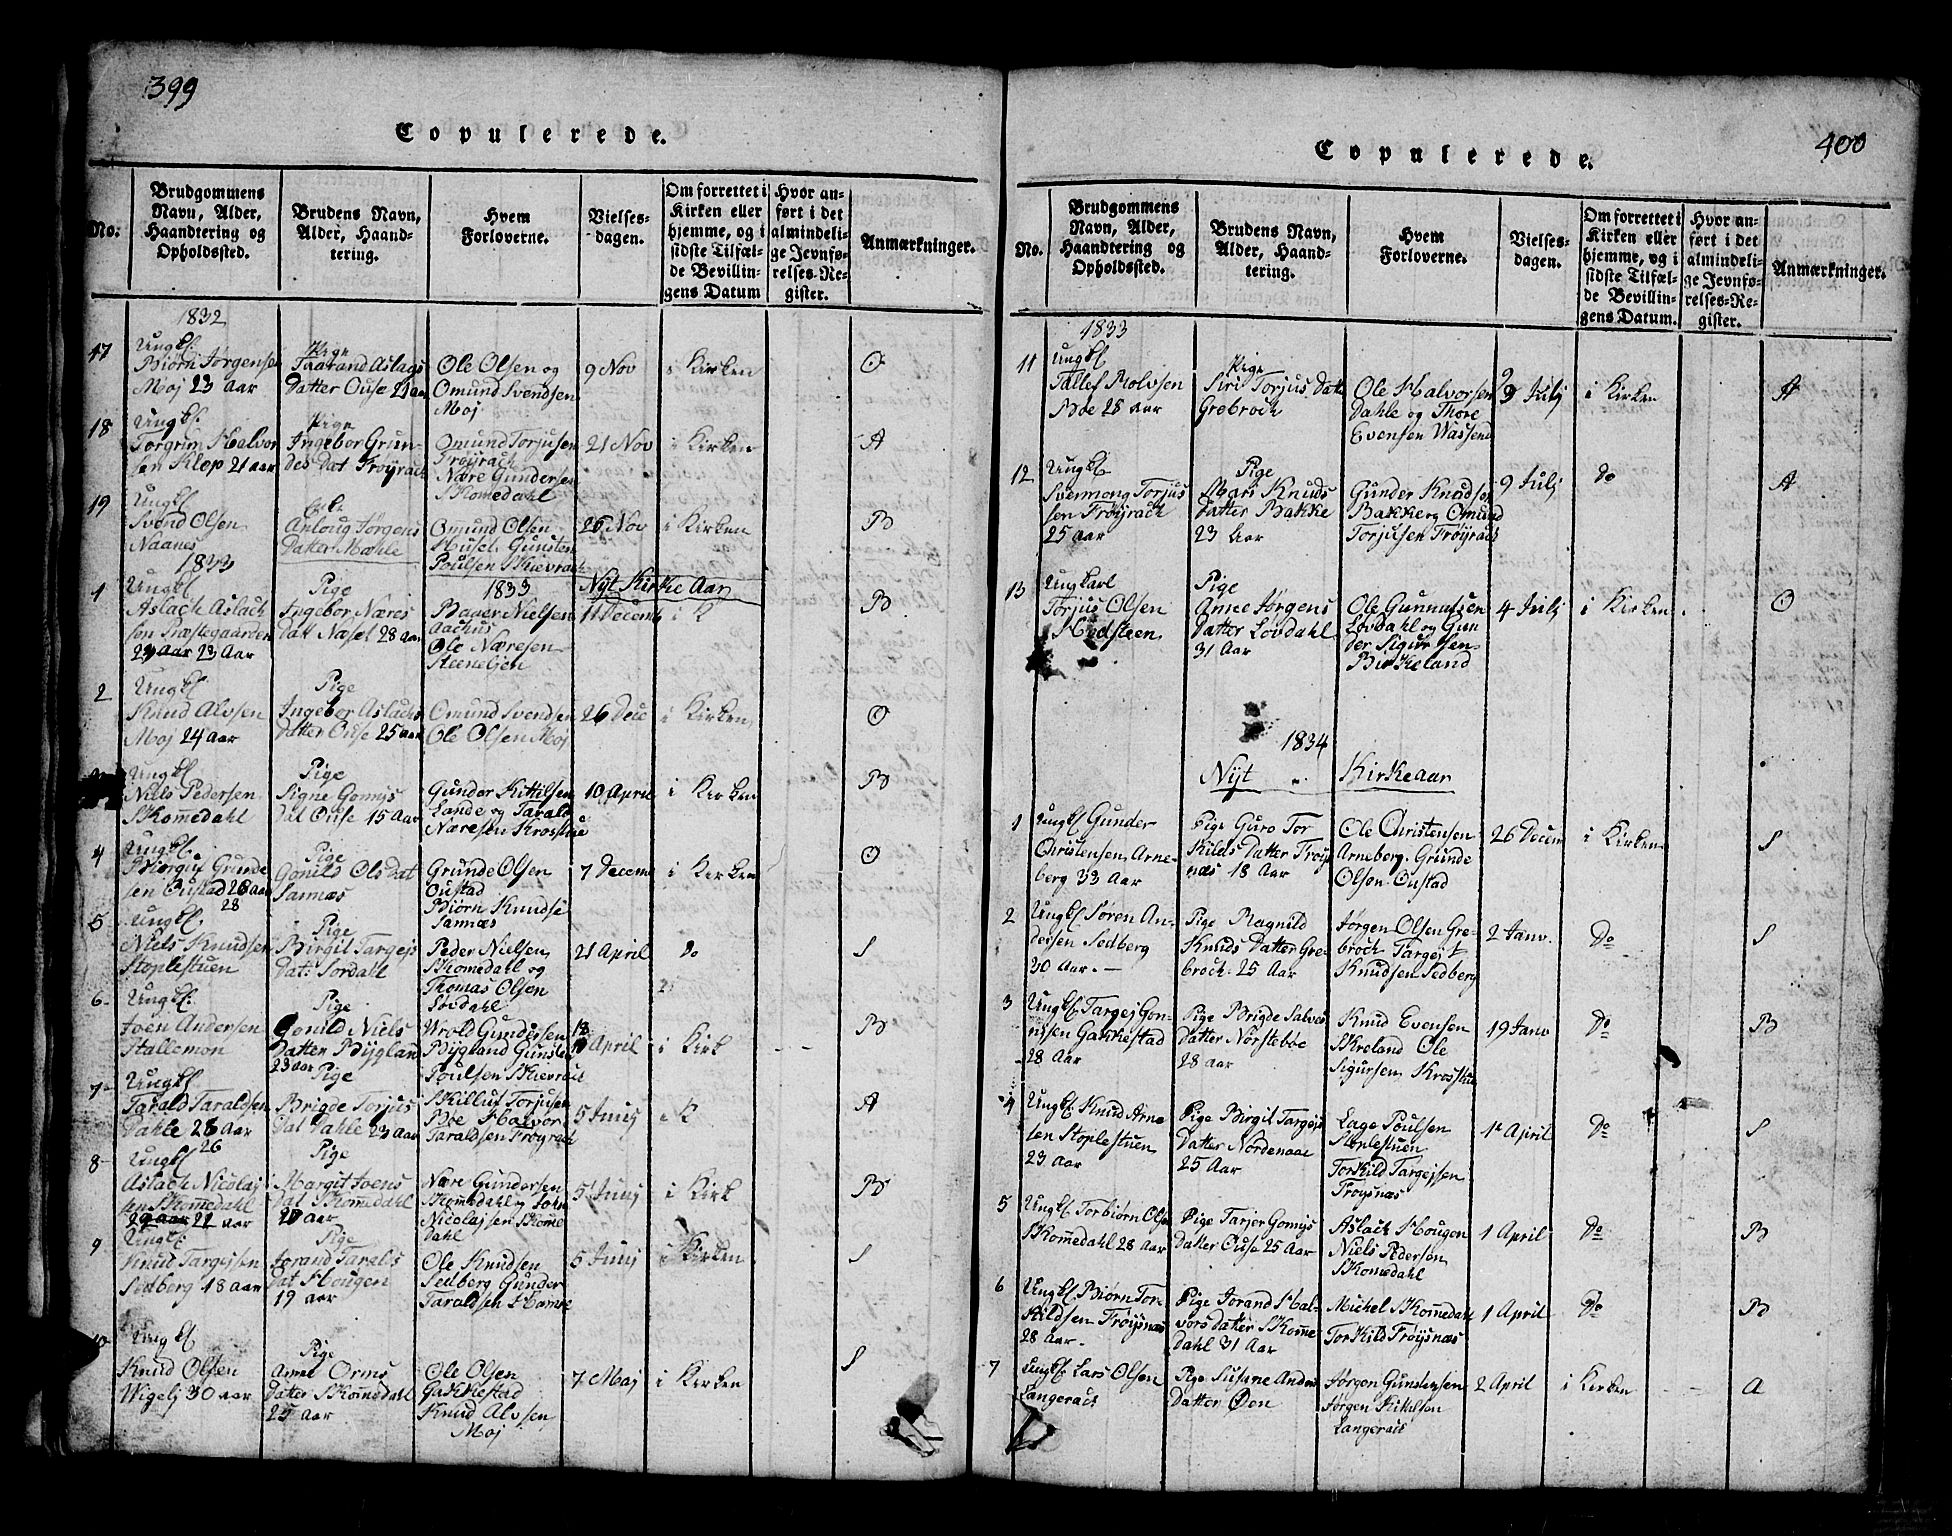 399
Copulerede.
No:
Brudgommens
Navn, Alder,
Haandtering og
Opholdssted.
Brudens Navn,
Alder, Haand-
tering.
Hvem
Forloverne.
Vielses-
dagen.
Om forrettet i
Kirken eller
hjemme, og i
sidste Tilfæl-
de Bevillin-
gens Datum
Hvor an-
ført i det
almindeli-
ge Jevnfø-
relses-Re-
gister.
Anmærkninger.
1832
17
Ungkl.
Biørn Jørgensen
Moj 23 aar
Pige
Taarand Aslags
Datter Ouse 21 aar
Ole Olsen og
Omund Svendsen
Moj
9 Nov
i Kirken
O
18
Ungkl.
Torgrim Halvor
sen Klep 21 aar
Pige
Ingebor Grun-
des Dat Frøyrach
Omund Torjusen
Frøyrach
Nære Gundersen
Skomedahl
21 Nov
i Kirken
A
19
Ungkl
Svend Olsen
Naanes
Anlaug Jørgens
Datter Mahle
Omund Olsen
Husel. Gunsten
Poulsen Skievrach
26 Nov
i Kirken
B
1833
1833
Nyt Kirke Aar
1
Ungkl
Aslach Aslach
sen Præstegaarden
23 Aar 23 Aar
Pige
Ingebor Næres
Datt Næset 28 aar
Bager Nielsen
Aachus
Ole Næresen
Steeneljen
11 Decemb
i K
B
2
Ungkl
Knud Alvsen
Moj 24 aar
Pige
Ingebor Aslachs
Datter Ouse 25 aar
Omund Svendsen
Ole Olsen Moj
26 Dec
i Kirken
O
Ungkl
Niels Pedersen
Skomedahl
Pige
Signe Gomys
Dat Ouse 15 Aar
Gunder Kittilsen
Lande og Tarald
Næresen Krostue
10 April
i Kirken
B
4
Ungkl.
Biørguf Grunde
sen Oustad 28 aar
28
Pige
Gonild Ols Dat
Sannæs
Grunde Olsen
Oustad
Biørn Knudse
Sannæs
7 Decem
i Kirken
O
5
Ungkl
Niels Knudsen
Stoplestuen
Pige
Birgit Targejs
Dat: Sordahl
Peder Nielsen
Skomedahl og
Thomas Olsen
Lovdahl
21 April
Do
S
6
Ungkl.
Joen Andersen
Hallemon
Pige
Gonild Niels
Datter Bygland
23 aar
Urold Gundersen
Bygland Gunsten
Poulsen Skievrach
18
April
i Kirk
B
7
Ungkl
Tarald Taraldsen
Dahle 28 Aar
26
Pige
Brigde Torjus
Dat Dahle 23 Aar
Skilluf Torjusen
Bøe Halvor
Taraldsen Frøyrach
5 Junj
i K
A
8
Ungkl
Aslach Nicolaj
sen Skomedahl
29 aar 22 aar
Pige
Margit Joens
Dat Skomedahl
20 aar
Nære Gundersen
Skomedahl og John
Nicolajsen Skome
dahl
5 Junj
i Kirk
B
9
Ungkl.
Knud Targejsen
Sedberg 18 aar
Pige
Jorand Taralds
Dat Hougen
19 aar
Ole Knudsen
Sedberg Gunder
Taraldsen Hamre
5 Junj
i Kirken
S
10
Ungkl
Knud Olsen
Wigelj 30 aar
Pige
Anne Orms
Datter Skomedahl
25 aar
Ole Olsen
Gakkestad
Knud Alvsen
Moj
7 Maj
i Kirken
S
400
Copulerede.
No.
Brudgommens
Navn, Alder,
Haandtering og
Opholdssted.
Brudens Navn,
Alder, Haand-
tering.
Hvem
Forloverne.
Vielses-
dagen.
Om forrettet i
Kirken eller
hjemme, og i
sidste Tilfæl-
de Bevillin-
gens Datum.
Hvor an-
ført i det
almindeli-
ge Jevnfø-
relses-Re-
gister.
Anmærkninger.
1833
11
Ungkl
Tallef Rolvsen
Bøe 25 aar
Pige
Siri Torjus Datt
Grebroch
Ole Halvorsen
Dahle og Thore
Evensen Wassend
9 Julj
i Kirken
A
12
Ungkl
Svennong Torjus
sen Frøyrach
25 aar
Pige
Mari Knuds
Datter Bakke
23 aar
Gunder Knudsen
Bakke og Omund
Torjusen Frøyrach
9 Julj
Do
A
13
Ungkarl
Torjus Olsen
Hodsteen
Pige
Anne Jørgens
Datter Lovdahl
31 Aar
Ole Gunnutsen
Lovdahl og Gun
der Sigursen
Birkeland
4 Julj
i Kirken
O
1834
Nyt Kirkeaar
1
Ungkl Gunder
Christensen Arne-
berg 33 Aar
Pige Guro Tor
Kilds Datter Frøy
næs 18 Aar
Ole Christensen
Arneberg. Grunde
Olsen. Oustad
26 Decem
i Kirken
S
2
Ungkl Søren An-
dersen Sedberg
30 Aar.
Pige Ragnild
Knuds Datter Gre-
broch. 25 Aar
Jørgen Olsen Gre-
broch Targejt
Knudsen Sedberg
2 Janv.
Do
S
3
Ungkl Targej Gon-
nysen Gakkestad
28 Aar
Pige Brigde Salves
Datter Norstebøe
28 aar
Knud Evensen
Skreland Ole
Sigursen Krostue
19 Janv
Do
B
4
Ungkl. Knud Arne
sen Stoplestuen
23 Aar
Pige Birgit Targejs
Datter Nordenaae
25 Aar
Lage Poulsen
Stoplestuen
Torkild Targejsen
Frøysnæs
1 April
Do
S
5
Ungkl Torbiørn Olsen
Skomedahl 28 aar
Pige Tarjer Gomys
Datter Ouse 25 Aar
Aslach Hougen
Niels Pedersen
Skomedahl
1 April
Do
B
6
Ungkl Biørn Tor-
kildsen Frøysnæs
28 aar
Pige Jorand Hal-
vors datter Skome
dahl 31 Aar
Michel Skomedahl
Torkild Frøysnæs
1 April
Do
B
7
Ungkl. Lars Olsen
Langerach
Pige Susane Anders
Datter Øen
Jørgen Gunstensen
Jørgen Kitelsen
Langerach
2 April
i Kirken
A